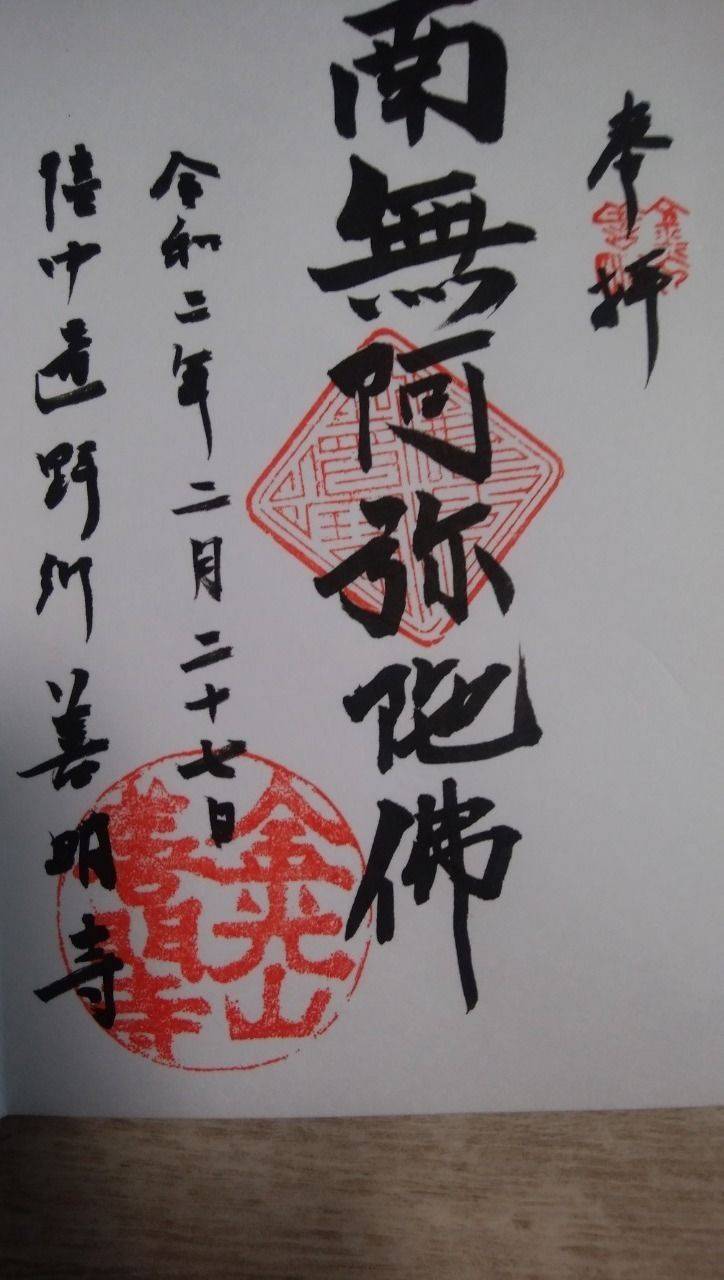 奉拝
南無阿弥陀佛
令和二年二月二十七日
陸中遠野郷善明寺
金光山
善明寺